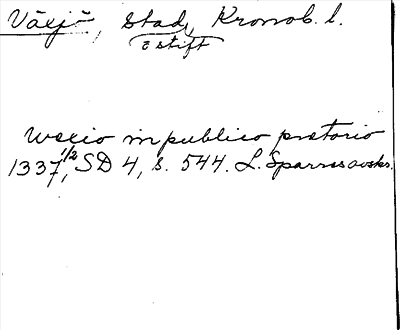 Växjö, Stad, Kronob. l.
o stift
Wexio in publico pretorio
1337 1/2, SD 4, s. 544. L. Sparrs avskr.